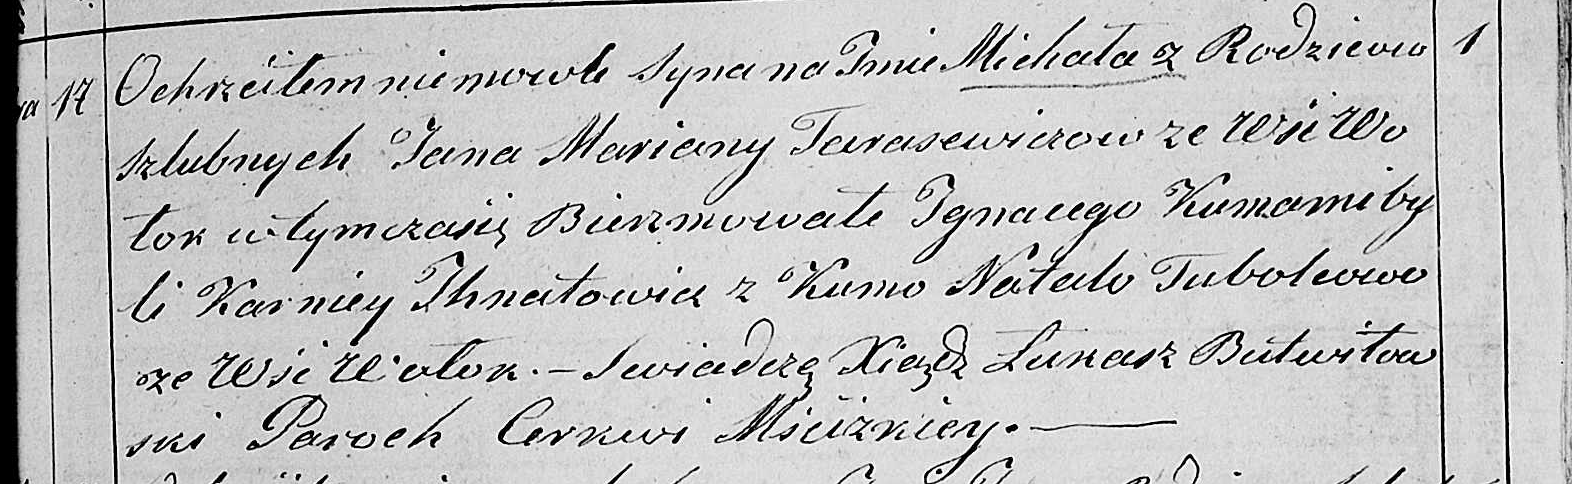 Ochrzciłem niemowle syna na Jmie Michała z Rodzicow 1
17 szlubnych Jana Mariany Tarasewiczow ze Wsi Wo
łok w tym czasię Bierzmowałe Jgnacego Kumami by
li Karniey Jhnatowicz z Kumo Natalo Tubolcowo
ze Wsi Wołok. – Swiadczę Xiądz Łukasz Butwiłow
ski Paroch Cerkwi Mściżkiey. —